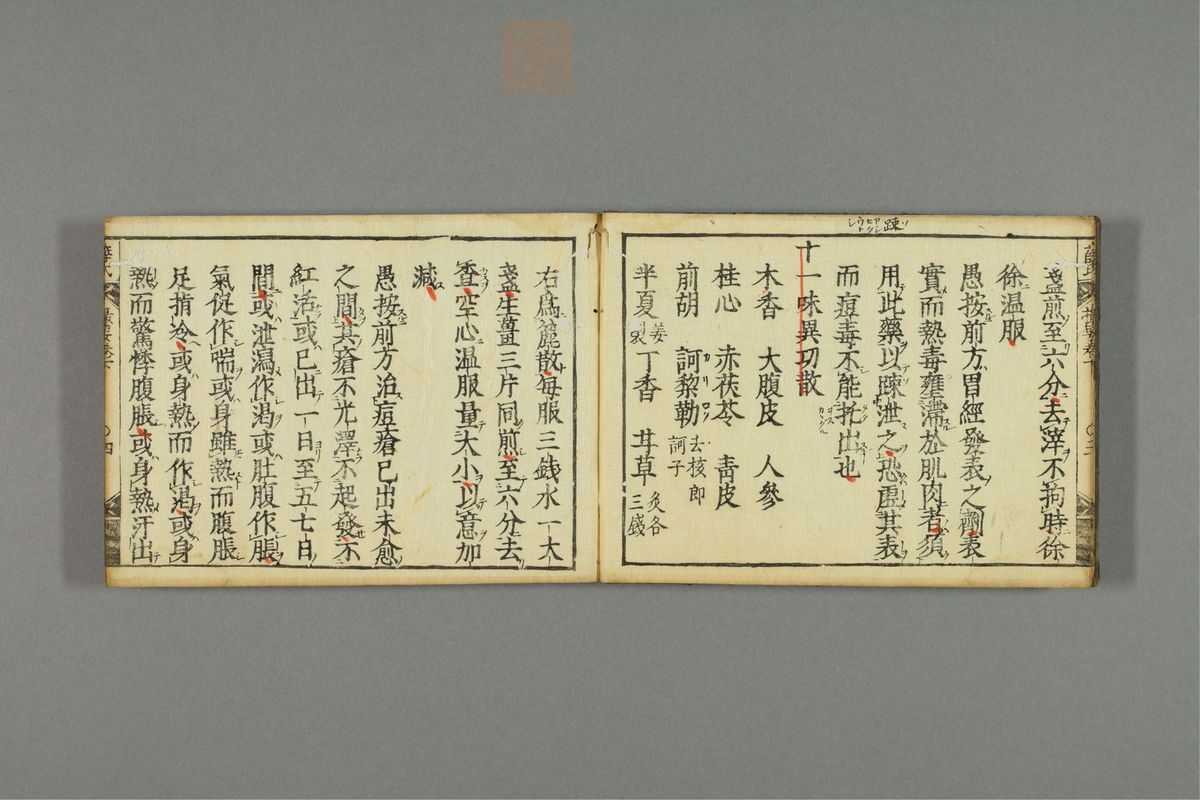 盞煎至六分去滓不拘時徐
徐温服
愚按前方胃經發表之劑表
實而熱毒壅滯於肌肉者須
用此藥以踈泄之恐虚其表
而痘毒不能托出也
十一味異功散
木香 大腹皮 人參
桂心 赤茯苓 青皮
前胡 訶黎勒 去核即訶子
半夏 姜製 丁香 甘草 炙各三錢
右爲麄散每服三錢水一大
盞生薑三片同煎至六分去
査空心温服量大小以意加
減
愚按前方治痘瘡已出未愈
之間其瘡不光澤不起發不
紅活或已出一日至五七日
間或泄瀉作渇或肚腹作脹
氣促作喘或身雖熱而腹脹
足指冷或身熱而作渇或身
熱而驚悸腹脹或身熱汗出
〇四